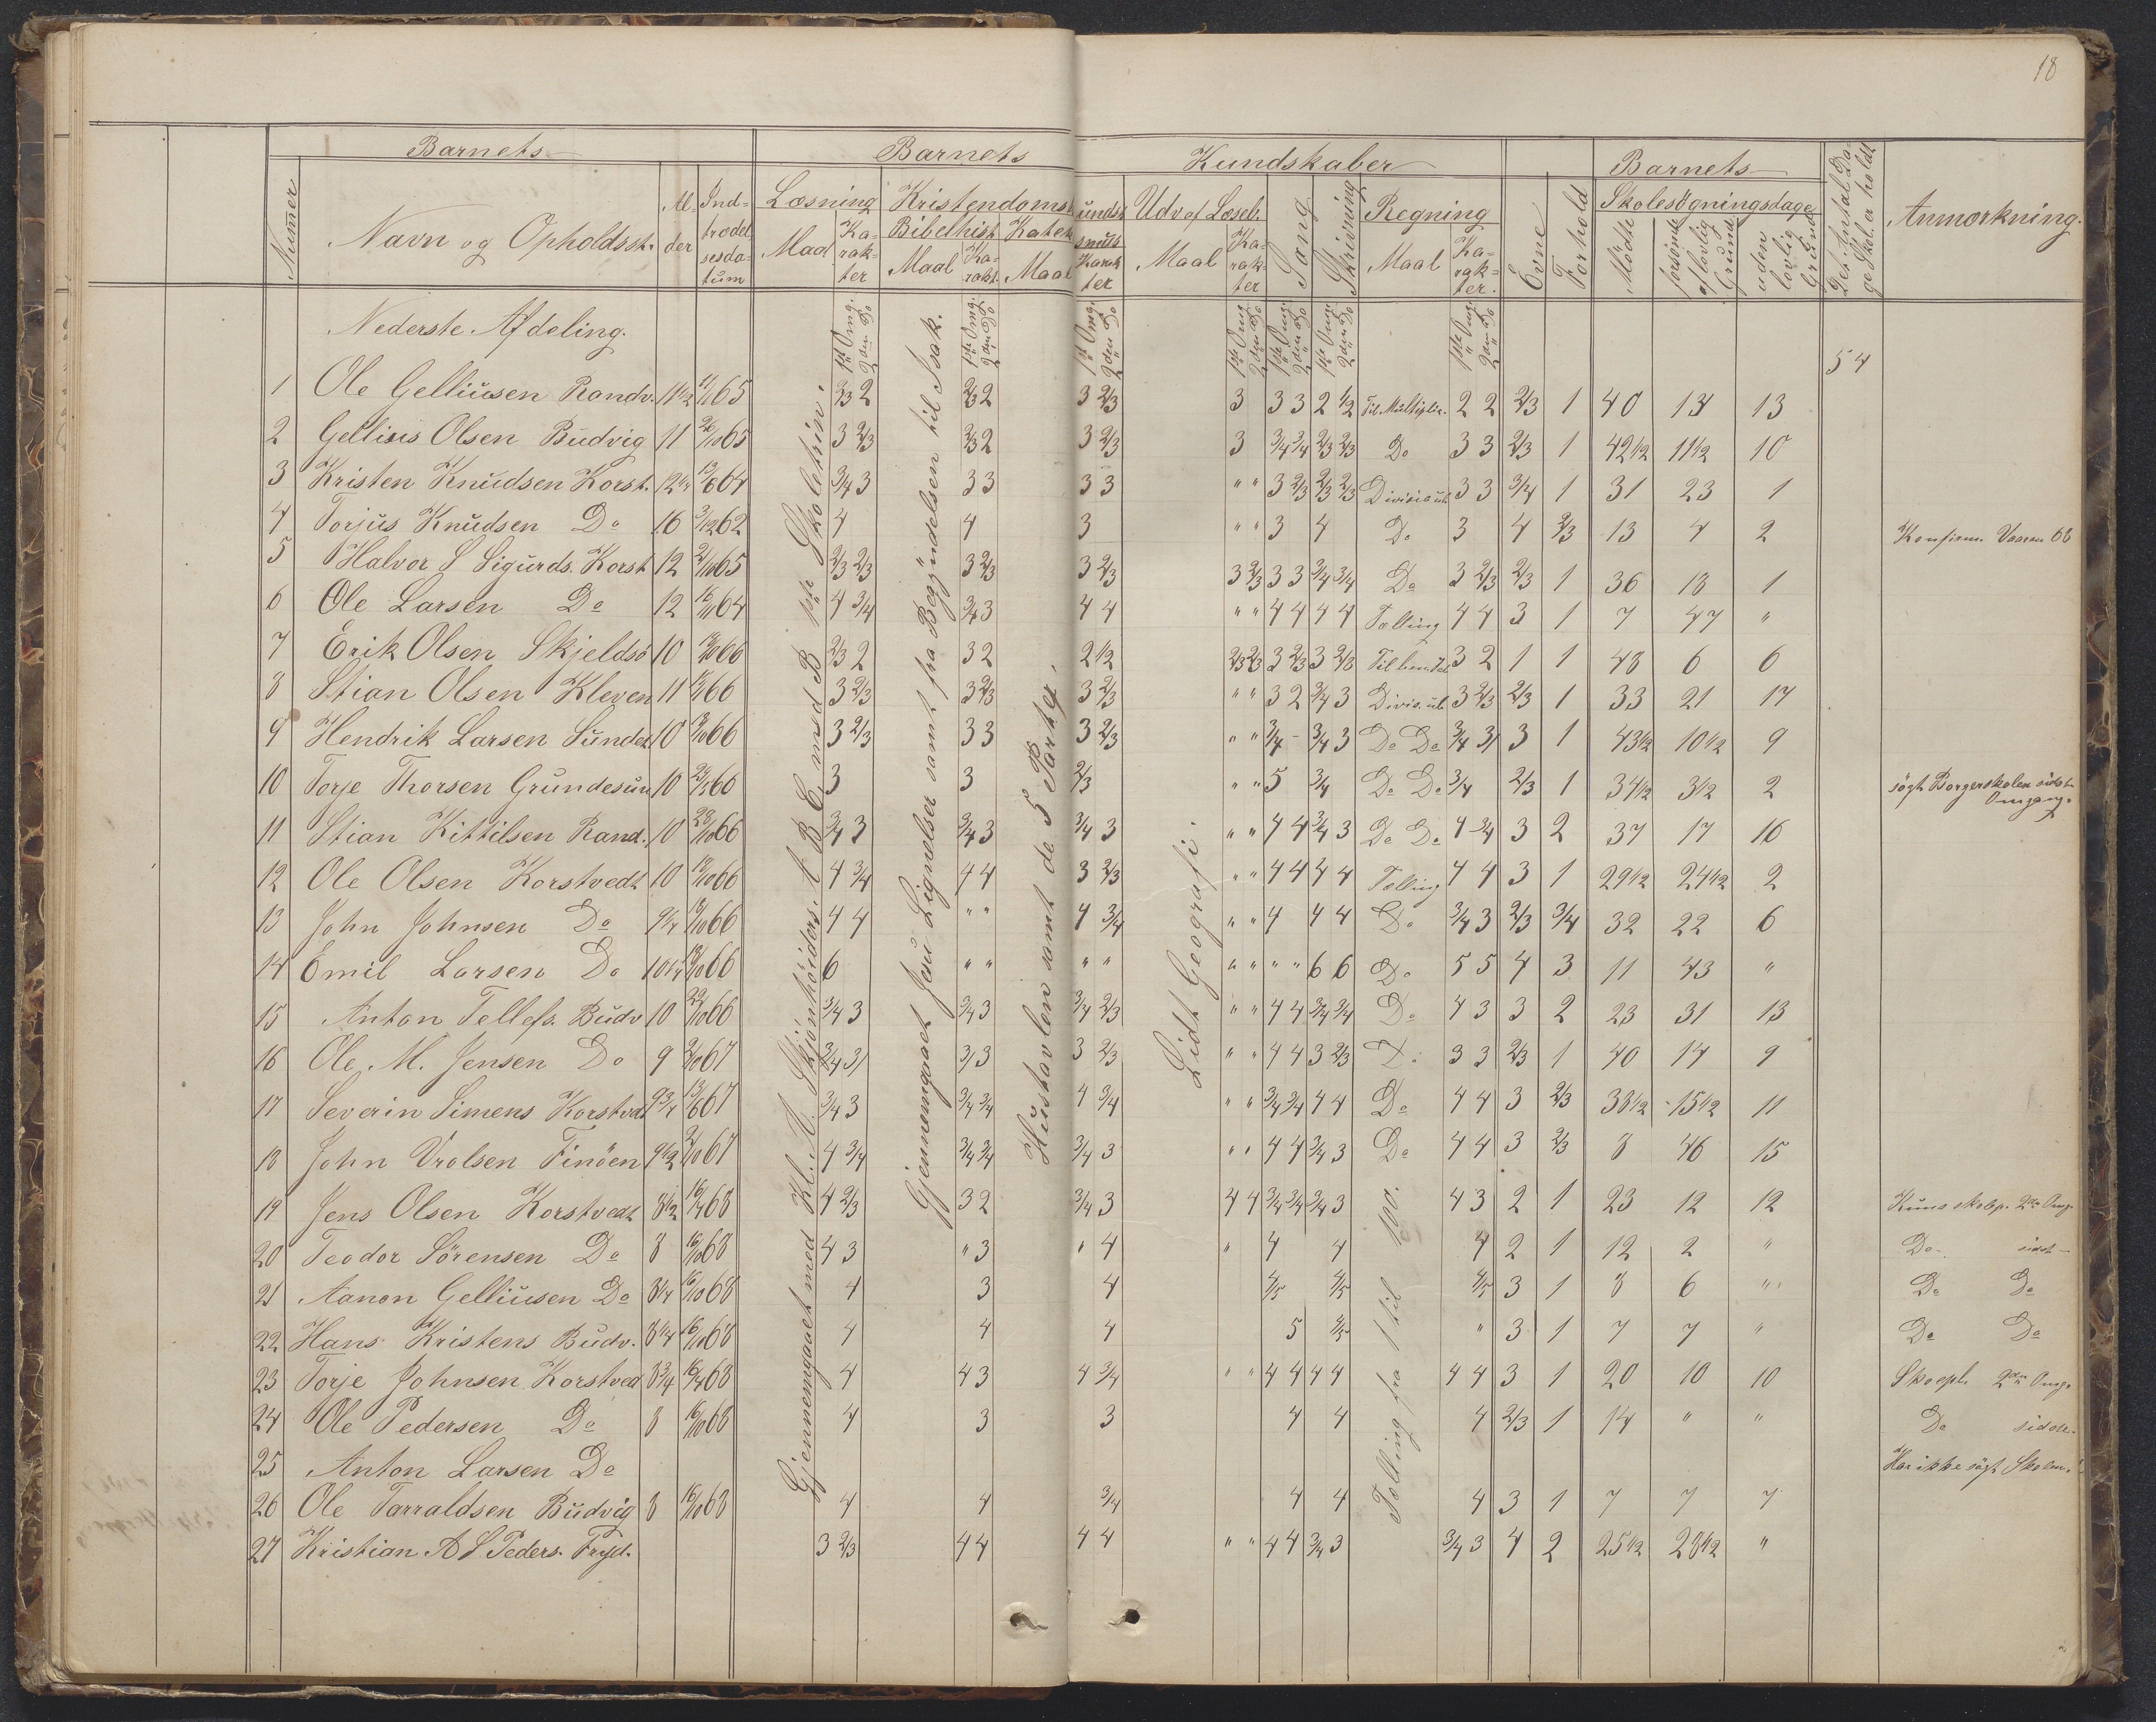 18
Barnets
Barnets
Kundskaber
Barnets
Det Antal Dage Skol. er holdt
Anmærkning.
Numer
Navn og Opholdsst.
Alder
Indtrædelsesdatum
Læsning
Kristendomskundsk.
Udv. af Læseb.
Sang
Skrivning
Regning
Evne
Forhold
Skolesøgningsdage
Maal
Karakter
Bibelhist.
Katek
Maal
Karakt.
Maal
Karakter
Maal
Karakter
Maal
Karakter.
Mødte
forsømte af lovlig Grund
uden lovlig Grund
Nederste Afdeling.
1ste Omg. 2den Do
54
1 Ole Gelliusen Randv. 11 1/2 65 2/3 2 2/3 2 3 2/3 3 3 3 2 1/2 Til Multiplic. 2 2 2/3 1 40 14 13
2 Gellius Olsen Budvig 11 65 3 2/3 2/3 2 3 2/3 3 3/4 3/4 2/3 2/3 Do 3 3 2/3 1 42 1/2 11 1/2 10
3 Kristen Knudsen Korst. 64 3/4 3 3 3 3 3 " " 3 2/3 2/3 2/3 3 3 3/4 1 31 23 1
4 Torjus Knudsen Do 16 3/12 62 4 4 3 " " 3 4 Do 3 4 2/3 13 4 2 Konfirm. Vaaren 68
5 Halvor S Sigurds. Korst 12 2/10 65 2/3 2/3 3 2/3 3 2/3 3 2/3 3 3 3/4 3/4 Do 3 2/3 2/3 1 36 18 1
6 Ole Larsen Do 12 64 4 3/4 3/4 3 4 4 " " 4 4 4 4 Tælling 4 4 3 1 7 47 "
7 Erik Olsen Skjeldsø 10 66 2/3 2 3 2 2 1/2 2/3 2/3 3 2/3 3 2/3 3 2 1 1 48 6 6
8 Stian Olsen Kleven 11 66 3 2/3 3 2/3 3 2/3 " " 3 2 3/4 3 3 2/3 2/3 1 33 21 17
9 Hendrik Larsen Sundet 10 66 3 2/3 3 3 3 2/3 " " 3/4 - 3/4 3 Do Do 3/4 3 3 1 43 1/2 10 1/2 9
10 Torje Thorsen Grundesun 10 66 3 3 2/3 " " 5 3/4 Do Do 3/4 2/3 1 34 1/2 3 1/2 2 søgt Borgerskolen sidste Omgang.
11 Stian Kittilsen Rand. 10 28/10 66 3/4 3 3/4 3 3/4 3 " " 4 4 3/4 3 Do Do 4 3/4 3 2 37 17 16
12 Ole Olsen Korstvedt 10 66 4 3/4 4 4 3 2/3 " " 4 4 4 4 Tælling 4 4 3 1 29 1/2 24 1/2 2
13 John Johnsen Do 66 4 4 " " 4 3/4 " " 4 4 4 Do 3/4 3 2/3 3/4 32 22 6
14 Emil Larsen Do 66 6 " " " " " " " " 6 6 Do 5 5 4 3 11 43 "
15 Anton Tellefs. Budv 10 22/10 66 3/4 3 3/4 3 3/4 2/3 " " 4 4 3/4 3/4 Do 4 3 3 2 23 31 13
16 Ole M. Jensen Do 9 67 3 3 3 2/3 " " 4 4 3 2/3 Do 3 3 2/3 1 40 14 9
17 Severin Simens Korstved 9 3/4 67 3/4 3 3/4 3/4 4 3/4 " " 3/4 3/4 4 4 Do 4 4 3 2/3 38 1/2 15 1/2 11
18 John Vrolsen Finøen 9 1/2 67 4 3/4 3/4 3/4 3/4 3 " " 4 4 3/4 3 Do 4 4 3 2/3 8 46 15
19 Jens Olsen Korstvedt 8 1/2 68 4 2/3 3 2 3/4 3 4 4 3/4 3/4 3/4 3 4 3 2 1 23 12 12
20 Teodor Sørensen Do 8 16/10 68 4 3 " 3 " 4 " 4 4 4 2 1 12 2 " Do sidst
21 Aanon Gelliusen Do 8 1/4 16/10 68 4 3 4 4/5 4/5 4/5 3 1 8 6 " Do Do
22 Hans Kristens Budv. 8 1/4 16/10 68 4 4 4 5 4/5 " 3 1 7 7 " Do Do
23 Torje Johnsen Korstved 8 3/4 68 4 4 3 4 3/4 " " 4 4 4 4 4 4 3 1 20 10 10 2den Omg.
24 Ole Pedersen Do 8 16/10 68 4 3 3 4 4 4 2/3 1 14 " " Do sidste.
25 Anton Larsen Do Har ikke søgt Skolen.
26 Ole Tarraldsen Budvig 8 16/10 68 4 4 3/4 4 4 4 3 1 7 7 7
27 Kristian A S Peders. Fryd. 3 2/3 4 4 4 4 " " 4 4 3/4 3 3/4 3 4 2 25 1/2 28 1/2 "
Gjennemgaaet med Kl. A Skjønhøiders. A B C med B pt. Skoletrin.
Gjennemgaaet Jesu Lignelser samt fra Begyndelsen til Isak.
Hustavlen samt de 5 Parter.
Lidt Geografi.
Tælling fra 1 til 100.